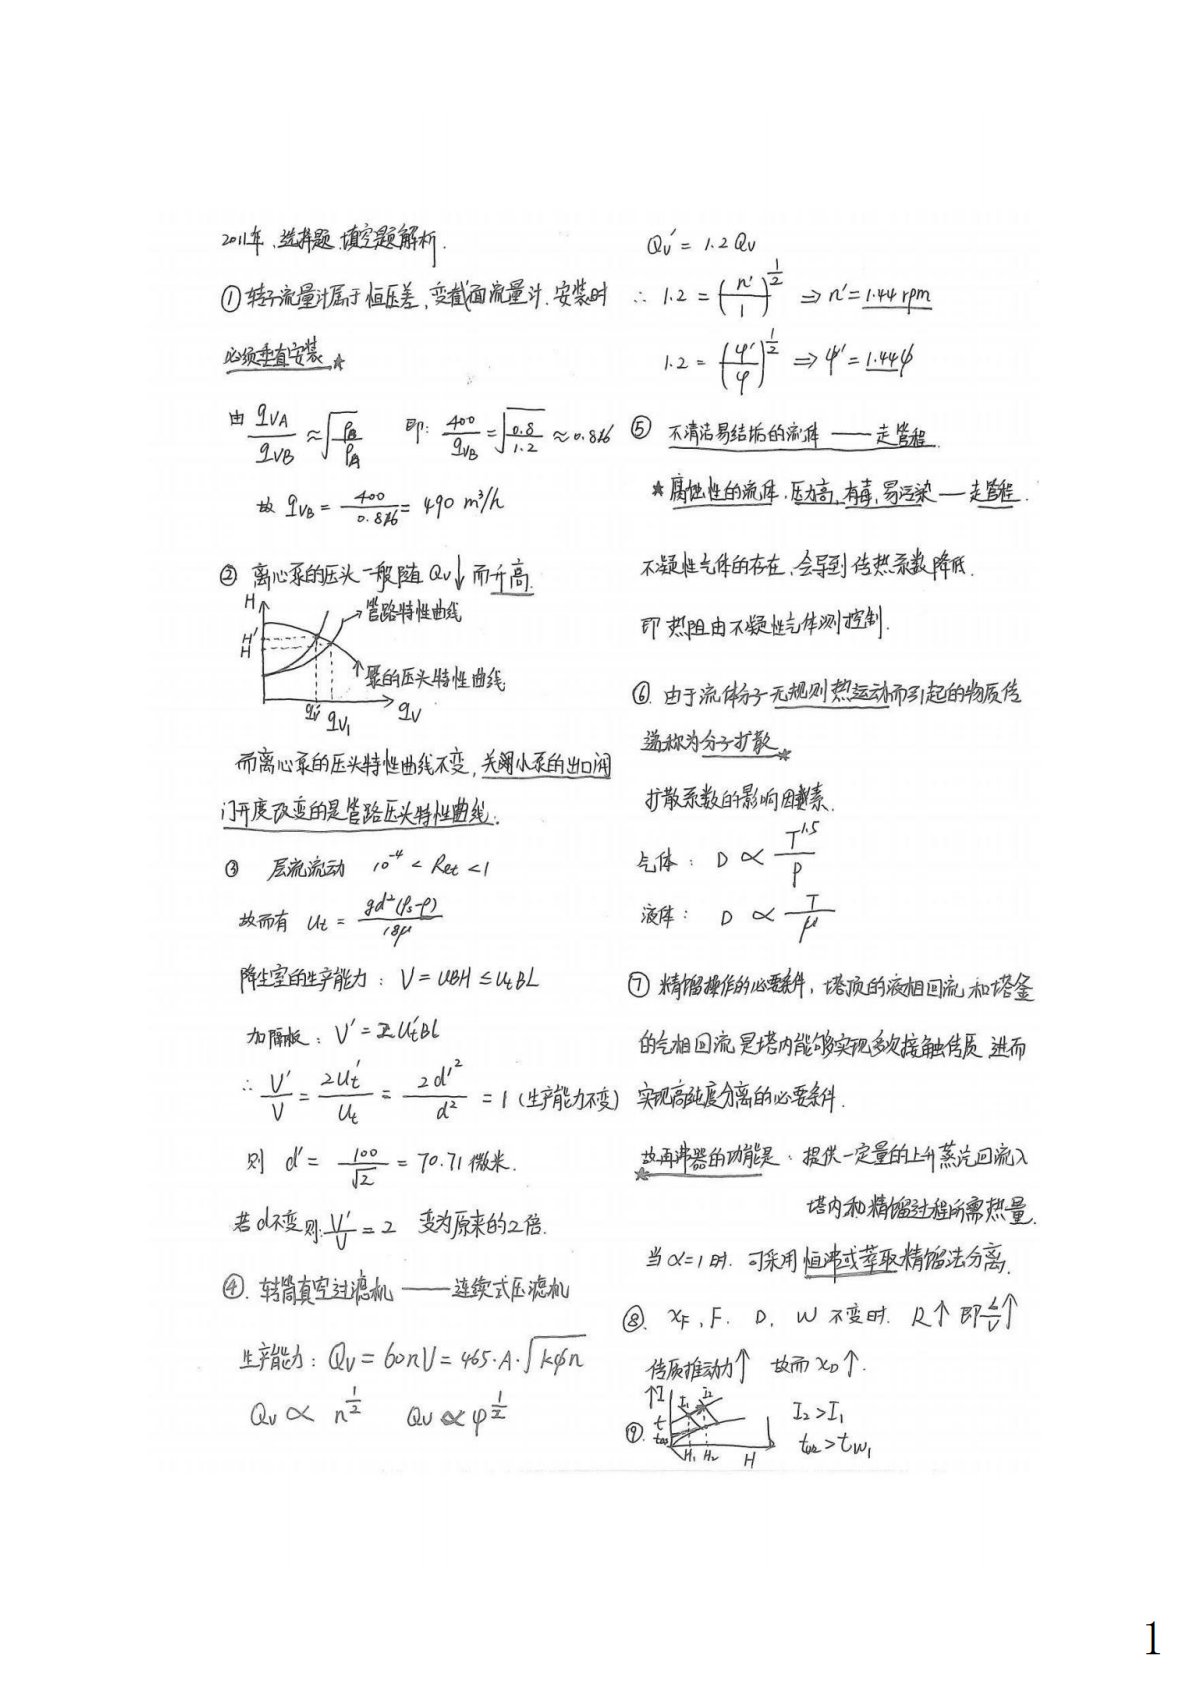 2011年、选择题、填空题解析.
①转子流量计属于恒压差、变截面流量计.安装时
必须垂直安装☆
由 qVA/qVB ≈ √(ρB/ρA) 即: 400/qVB = √(0.8/1.2) ≈ 0.816
故 qVB = 400/0.816 = 490 m³/h
② 离心泵的压头一般随 Qv↓ 而升高.
H
管路特性曲线
H'
H
泵的压头特性曲线
qv' qv₁ qv
而离心泵的压头特性曲线不变,关阀小泵的出口阀
门开度改变的是管路压头特性曲线.
③ 层流流动 10⁻⁴ < Ret < 1
故而有 ut = gd²(ρs-ρ)/18μ
降尘室的生产能力: V = uBH ≤ utBL
加隔板: V' = 2ut'BL
∴ V'/V = 2ut'/ut = 2d'²/d² = 1 (生产能力不变)
则 d' = 100/√2 = 70.71 微米.
若d不变则: V'/V = 2 变为原来的2倍.
④. 转筒真空过滤机 —— 连续式压滤机
生产能力: Qv = 60nV = 465·A·√(kφn)
Qv ∝ n^(1/2) Qv ∝ φ^(1/2)
Qv' = 1.2 Qv
∴ 1.2 = (n'/1)^(1/2) ⇒ n' = 1.44 rpm
1.2 = (φ'/φ)^(1/2) ⇒ φ' = 1.44φ
⑤ 不清洁易结垢的流体 —— 走管程.
★腐蚀性的流体,压力高,有毒,易污染 — 走管程.
不凝性气体的存在,会导到传热系数降低.
即热阻由不凝性气体测控制.
⑥. 由于流体分子无规则热运动而引起的物质传
递称为分子扩散☆
扩散系数的影响因素.
气体: D ∝ T^1.5/P
液体: D ∝ T/μ
⑦ 精馏操作的必要条件,塔顶的液相回流和塔釜
的气相回流是塔内能够实现多次接触传质 进而
实现高纯度分离的必要条件.
故再沸器的功能是: 提供一定量的上升蒸汽回流入
☆
塔内和精馏过程所需热量.
当 α=1 时. 可采用恒沸或萃取精馏法分离.
⑧. xF, F. D, W 不变时. R↑ 即 L/V↑
传质推动力↑ 故而 xD↑.
⑨. I I₁ I₂ t tas H₁ H₂ H
I₂ > I₁
tw₂ > tw₁
1